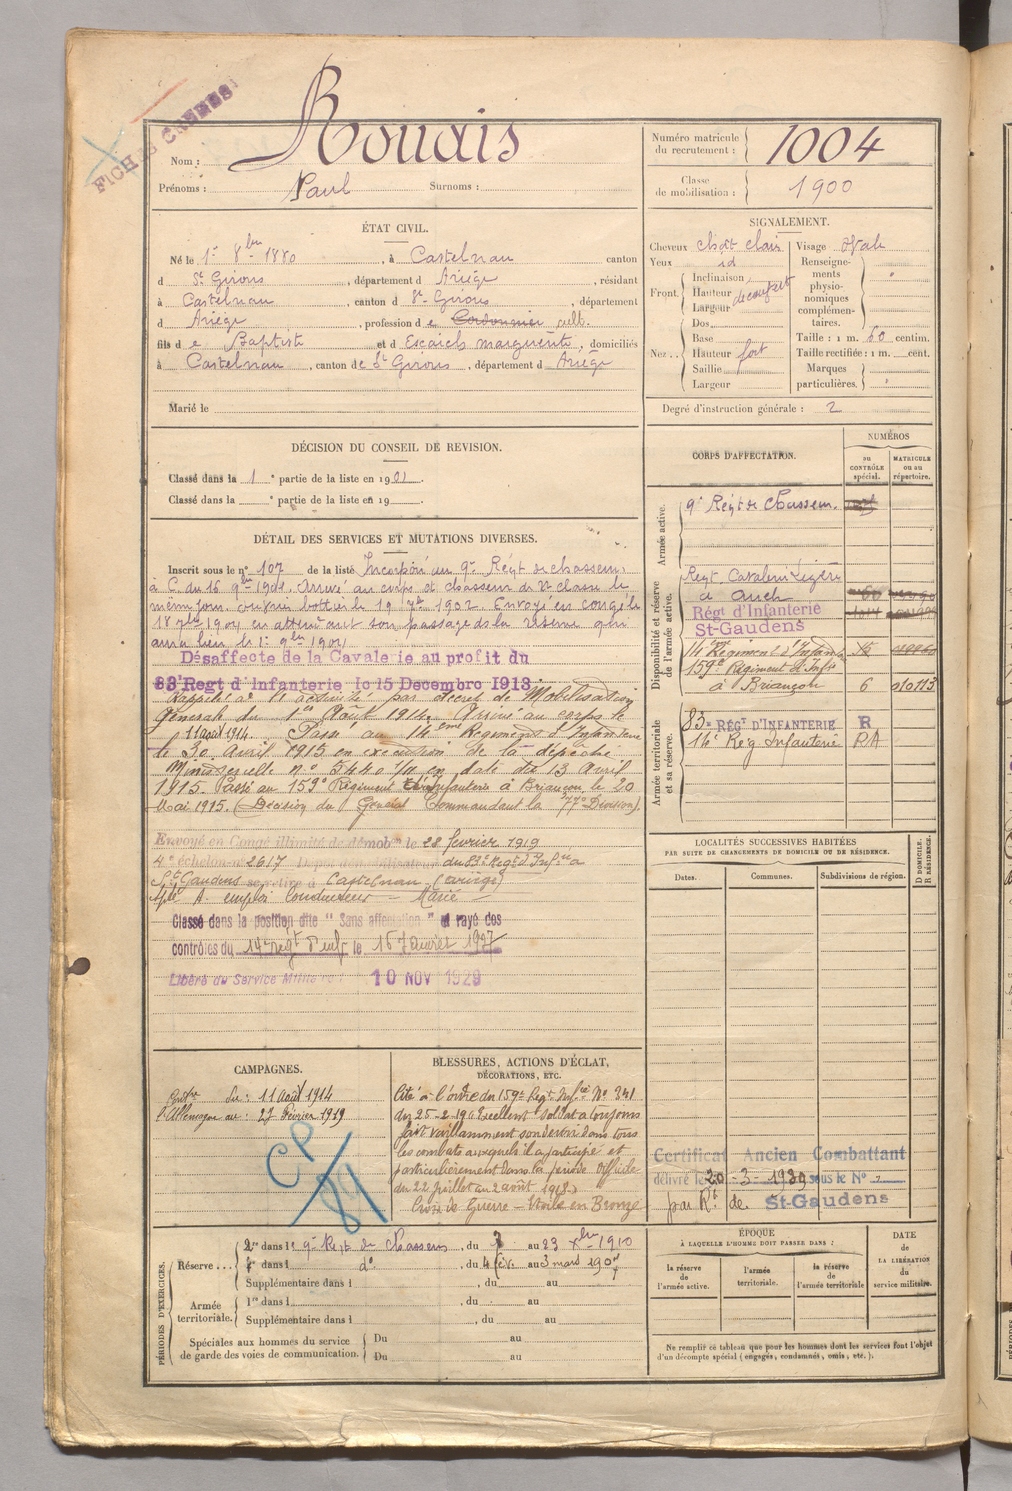 FICHES CRÉÉES
Nom : Rouais
Prénoms : Paul Surnoms :
Numéro matricule du recrutement : 1004
Classe de mobilisation : 1900
ÉTAT CIVIL.
Né le 1er 8bre 1880, à Castelnau canton
d St Girons, département d Ariège, résidant
à Castelnau, canton d St Girons, département
d Ariège, profession de Cordonnier cult.
fils de Baptiste et d Escaich Marguerite, domiciliés
à Castelnau, canton de St Girons, département d Ariège
Marié le
SIGNALEMENT.
Cheveux chât clair
Yeux id
Front Inclinaison
Hauteur découvert
Largeur
Nez Dos
Base
Hauteur fort
Saillie
Largeur
Visage Ovale
Renseignements physionomiques complémentaires. "
Taille : 1 m. 60 centim.
Taille rectifiée : 1 m. cent.
Marques particulières. "
Degré d'instruction générale : 2
DÉCISION DU CONSEIL DE REVISION.
Classé dans la 1e partie de la liste en 1901.
Classé dans la e partie de la liste en 19 .
DÉTAIL DES SERVICES ET MUTATIONS DIVERSES.
Inscrit sous le n° 107 de la liste Incorporé au 9e Régt de chasseurs
à C. du 16 9bre 1901. Arrivé au corps et chasseur de 2e classe le
même jour. bottier le 19 7bre 1902. Envoyé en congé le
18 7bre 1904 en attendant son passage ds la réserve qui
aura lieu le 1er 9bre 1904
Désaffecte de la Cavalerie au profit du
83e Regt d'Infanterie le 15 Decembre 1913.
Rappelé à l'activité par décret de Mobilisation
Générale du 1er Août 1914. Arrivé au corps le
11 août 1914. Passé au 14ème Régiment d'Infanterie
le 30 avril 1915 en exécution de la dépêche
Ministérielle n° 5440 1/11 en date des 13 Avril
1915. Passé au 159e Régiment d'Infanterie à Briançon, le 20
Mai 1915. (Décision du Général Commandant la 77e Division).
Envoyé en Congé illimité de démobon le 28 février 1919
4e échelon n° 2617 Dépôt démobilisateur du 83e Regt d'Infrie à
St Gaudens se retire à Castelnau (Ariège)
Aplé A. emploi Conducteur — Marié —
Classé dans la position dite "Sans affectation" et rayé des
contrôles du 14e regt d'inf. le 15 Janvier 1927
Libéré du Service Militaire : 10 NOV 1929
CORPS D'AFFECTATION.
NUMÉROS
DU CONTRÔLE spécial.
MATRICULE ou au répertoire.
Armée active.
9e Régt de Chasseurs.
Disponibilité et réserve de l'armée active.
Regt Cavalerie Légère
à Auch
Régt d'Infanterie
St-Gaudens
14eme Régiment d'Infanterie
159e Régiment d'Infie
à Briançon 6 010113
Armée territoriale et sa réserve.
83e RÉGt D'INFANTERIE R
14e Rég Infanterie RA
LOCALITÉS SUCCESSIVES HABITÉES
PAR SUITE DE CHANGEMENTS DE DOMICILE OU DE RÉSIDENCE.
Dates. Communes. Subdivisions de région. D DOMICILE. R RÉSIDENCE.
CAMPAGNES.
Contre du : 11 Août 1914
l'Allemagne au : 27 Février 1919
CP/89
BLESSURES, ACTIONS D'ÉCLAT,
DÉCORATIONS, ETC.
Cité à l'ordre du 159e Regt Infrie N° 341
du 25-2-19 "Excellent soldat a toujours
fait vaillamment son devoir dans tous
les combats auxquels il a participé et
particulièrement dans la période Officielle
du 22 juillet au 2 août 1918."
Croix de Guerre — Etoile en Bronze
Certificat Ancien Combattant
délivré le 20-3-1939 sous le N°
par Rt de St-Gaudens
PÉRIODES D'EXERCICES.
Réserve ... 2e dans le 9e Régt de Chasseurs, du au 23 Xbre 1910
1re dans l do, du 4 fév. au 3 mars 1907
Supplémentaire dans l , du au
Armée territoriale. 1re dans l , du au
Supplémentaire dans l , du au
Spéciales aux hommes du service de garde des voies de communication. Du au
Du au
ÉPOQUE
À LAQUELLE L'HOMME DOIT PASSER DANS :
la réserve de l'armée active.
l'armée territoriale.
la réserve de l'armée territoriale
DATE de LA LIBÉRATION du service militaire.
Ne remplir ce tableau que pour les hommes dont les services font l'objet
d'un décompte spécial (engagés, condamnés, omis, etc.).